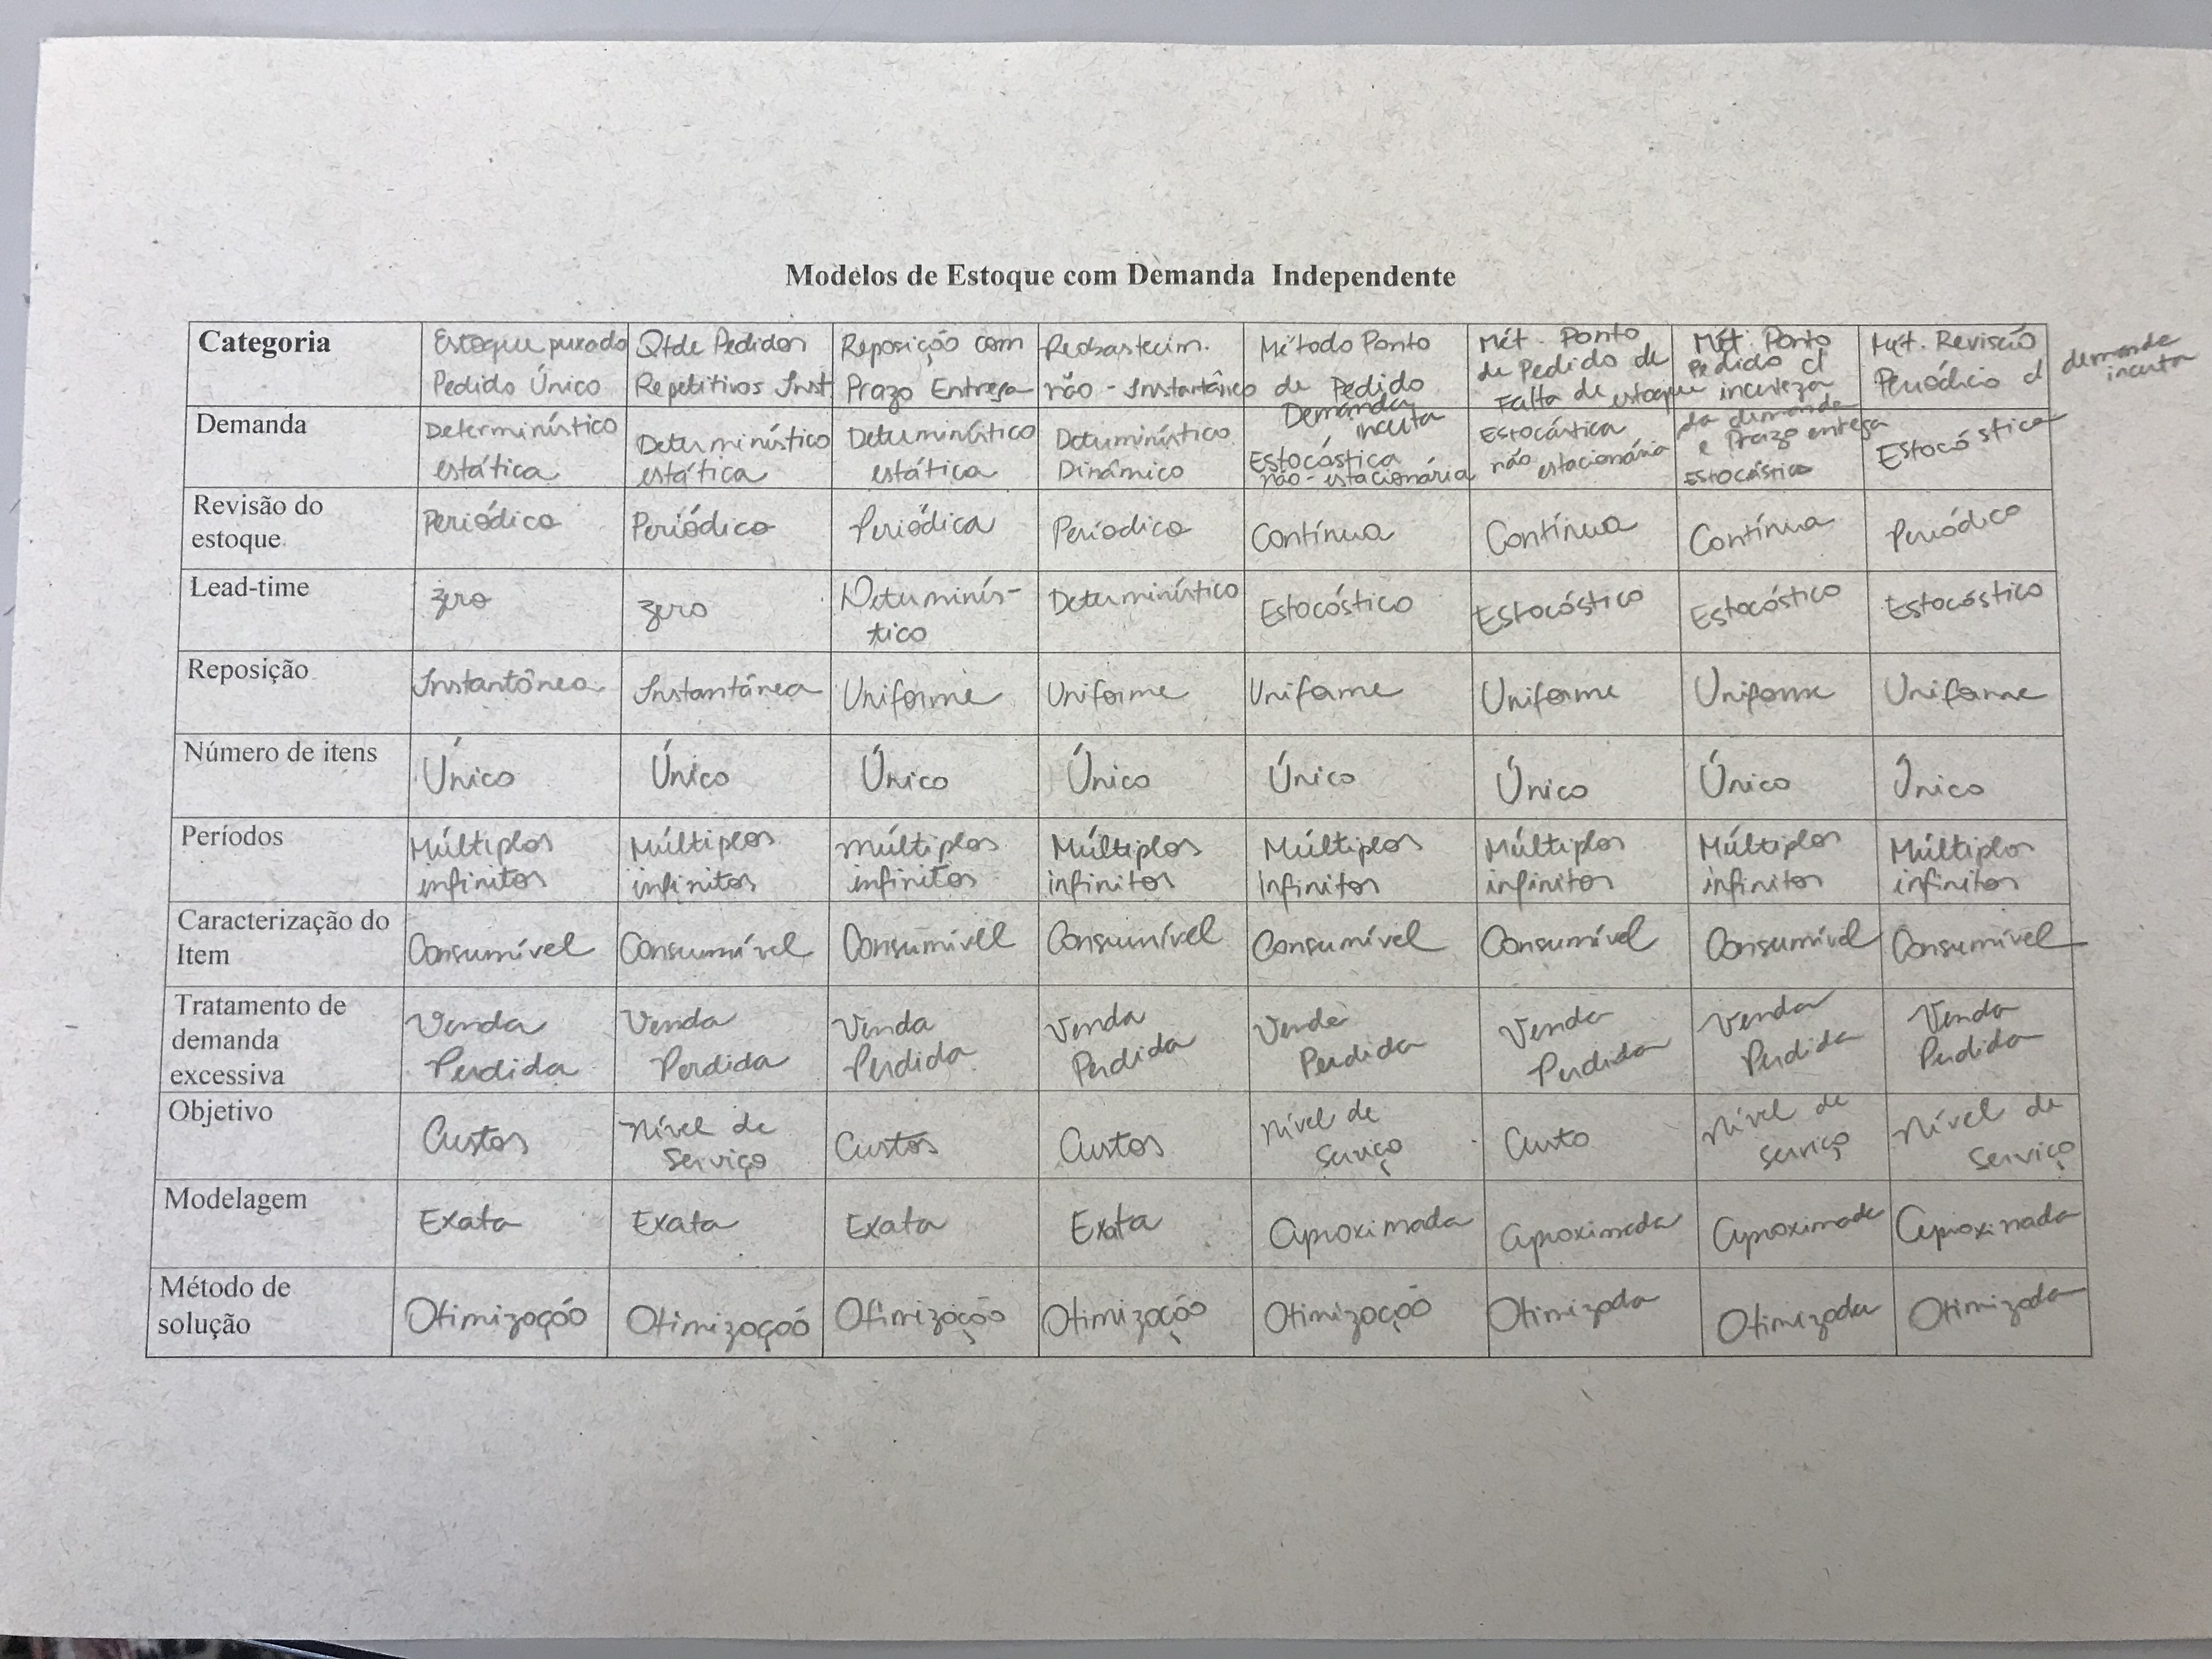 Modelos de Estoque com Demanda Independente
Categoria
Estoque puxado
Pedido Único
Qtde Pedidos
Repetitivos Inst
Reposição com
Prazo Entrega
Reabastecim.
não-instantâneo
Método Ponto
de Pedido
Demanda
incerta
Mét. Ponto
de Pedido de
Falta de estoque
Mét. Ponto
Pedido c/
incerteza
da demanda
e Prazo entrega
Mét. Revisão
Periódica c/
demanda
incerta
Demanda
Determinístico
estática
Determinístico
estática
Determinístico
estática
Determinístico
Dinâmico
Estocástica
não-estacionária
Estocástica
não estacionária
Estocástica
Estocástica
Revisão do
estoque
Periódica
Periódico
Periódica
Periodico
Contínua
Contínua
Contínua
Periódico
Lead-time
zero
zero
Determinís-
tico
Determinístico
Estocástico
Estocástico
Estocástico
Estocástico
Reposição
Instantânea
Instantânea
Uniforme
Uniforme
Uniforme
Uniforme
Uniforme
Uniforme
Número de itens
Único
Único
Único
Único
Único
Único
Único
Único
Períodos
Múltiplos
infinitos
Múltiplos
infinitos
Múltiplos
infinitos
Múltiplos
infinitos
Múltiplos
Infinitos
Múltiplos
infinitos
Múltiplos
infinitos
Múltiplos
infinitos
Caracterização do
Item
Consumível
Consumível
Consumível
Consumível
Consumível
Consumível
Consumível
Consumível
Tratamento de
demanda
excessiva
Venda
Perdida
Venda
Perdida
Venda
Perdida
Venda
Perdida
Venda
Perdida
Venda
Perdida
Venda
Perdida
Venda
Perdida
Objetivo
Custos
Nível de
Serviço
Custos
Custos
Nível de
serviço
Custo
Nível de
serviço
Nível de
serviço
Modelagem
Exata
Exata
Exata
Exata
Aproximada
Aproximada
Aproximada
Aproximada
Método de
solução
Otimização
Otimização
Otimização
Otimização
Otimização
Otimizador
Otimizador
Otimizador